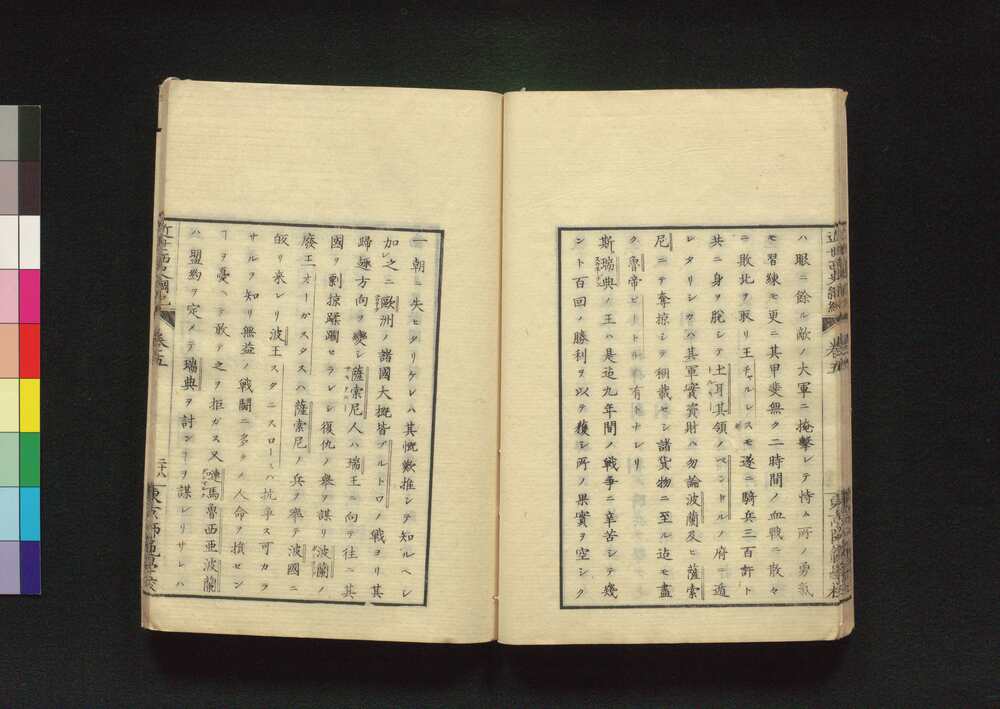 ハ眼ニ餘ル敵ノ大軍ニ掩擊シテ恃ム所ノ勇氣
モ習練モ更ニ其甲斐無ク二時間ノ血戰ニ散々
ニ敗北ヲ取リ王チャルレスモ遂ニ騎兵三百許ト
共ニ身ヲ脫シテ土耳其領ノベンドルノ府ニ遁
レタリシカハ其軍實資財ハ勿論波蘭及ヒ薩索
尼ニテ奪掠シテ稛載セシ諸貨物ニ至ル迄モ盡
ク魯帝ビートルノ有トナレリ
斯瑞典ノ王ハ是迄九年間ノ戰爭ニ辛苦シテ幾
ント百回ノ勝利ヲ以テ獲シ所ノ果實ヲ空シク
一朝ニ失ヒタリケレハ其慨歎推シテ知ルヘシ
加之ニ歐洲ノ諸國大抵皆プルトワノ戰ヨリ其
歸趣方向ヲ變シ薩索尼人ハ瑞王ニ向テ往ニ其
國ヲ剽掠蹂躙セラレシ復仇ノ擧ヲ謀リ波蘭ノ
廢王オーガスタスハ薩索尼ノ兵ヲ率テ波國ニ
皈リ來レリ波王スタニスロースハ抗爭ス可カラ
サルヲ知リ無益ノ戰鬪ニ多クノ人命ヲ損セン
ヿヲ憂ヘテ敢テ之ヲ拒ガス又嗹馬魯西亜波蘭
ハ盟約ヲ定メテ瑞典ヲ討ンヿヲ謀レリサレハ
近世西史綱紀
卷五
二十八
東京師範學校